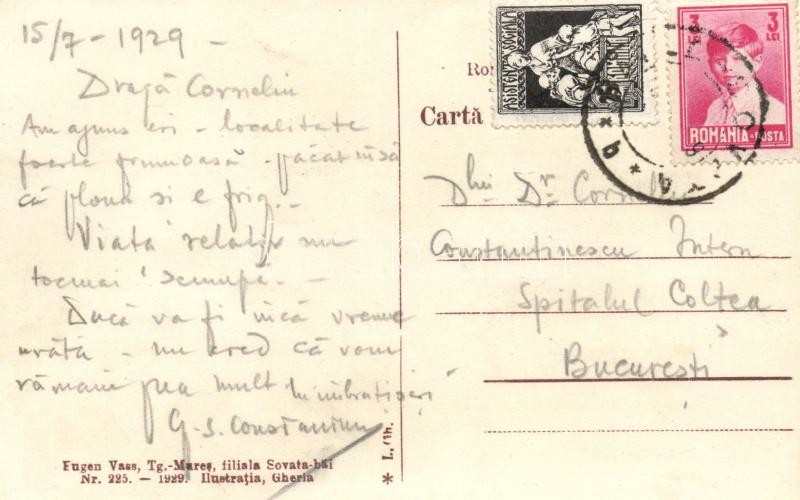 15/7 - 1929 -
Dragă Corneliu
Am ajuns eri - localitate
foarte frumoasă - păcat însă
că plouă si e frig. -
Viata relativ nu
tocmai scumpă. -
Dacă va fi încă vreme
urâtă - nu cred că vom
rămâne prea mult
G. S.
Eugen Vass, Tg.-Mureș, filiala Sovata-băi
Nr. 225. — 1929. Ilustrația, Gherla
* L.
Carta
ASISTENȚA SOCIALA
ROMANIA
3 LEI
3 LEI
ROMANIA-POSTA
Dlui Dr Corneliu
Constantinescu Intern
Spitalul Coltea
București